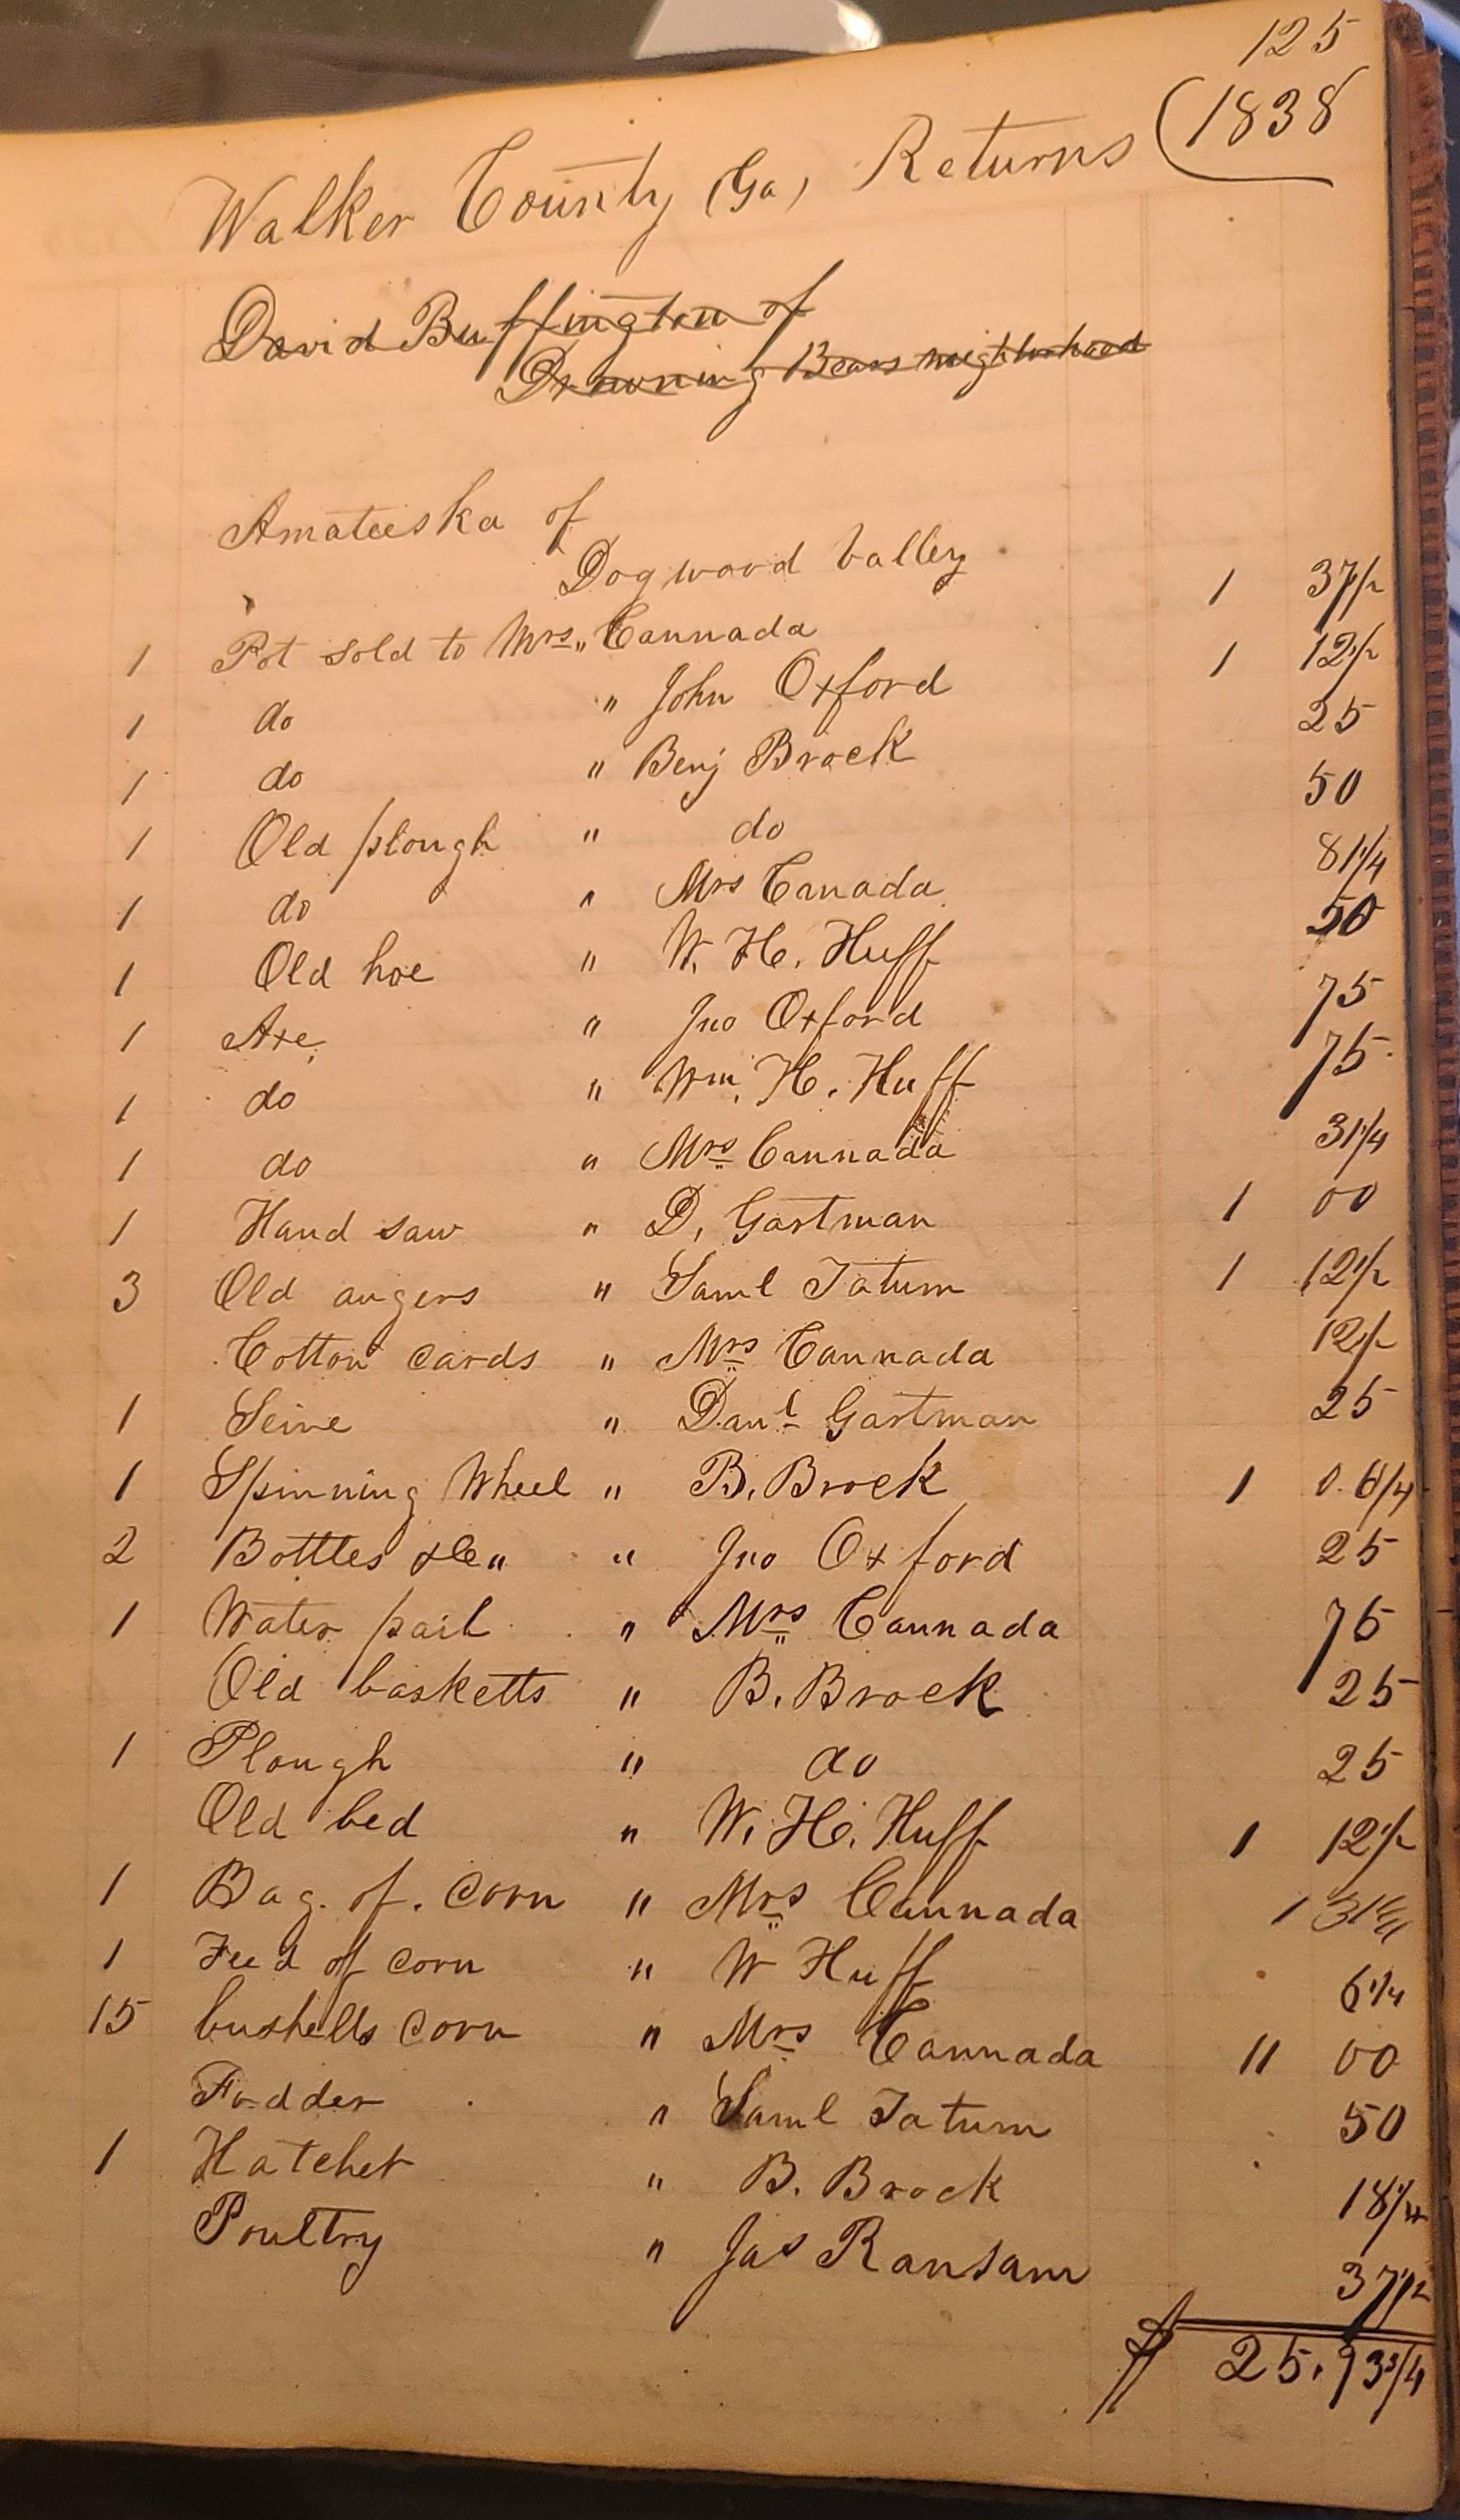 125
Walker County (Ga) Returns (1838
David Buffington of
Drowning Bears neighborhood
Amateeska of
Dogwood Valley
1 Pot sold to Mrs " Cannada 1 37½
1 do " John Oxford 1 12½
1 do " Benj Brock 25
1 Old plough " do 50
1 do " Mrs Canada 81¼
1 Old hoe " W. H. Huff 50
1 Axe " Jno Oxford 75
1 do " Wm. H. Huff 75
1 do " Mrs Cannada 31¼
1 Hand saw " D. Gartman 1 00
3 Old augers " Saml Tatum 1 12½
Cotton cards " Mrs Cannada 12½
1 Seive " Danl Gartman 25
1 Spinning Wheel " B. Brock 1 06¼
2 Bottles &c " " Jno Oxford 25
1 Water pail " Mrs Cannada 75
Old basketts " B. Brock 25
1 Plough " do 25
Old bed " W. H. Huff 1 12½
1 Bag. of. Corn " Mrs Cannada 1 31¼
1 Feed of corn " W Huff 6¼
15 bushells Corn " Mrs Cannada 11 00
Fodder " Saml Tatum 50
1 Hatchet " B. Brock 18¾
Poultry " Jas Ransam 37½
$ 25.93¾